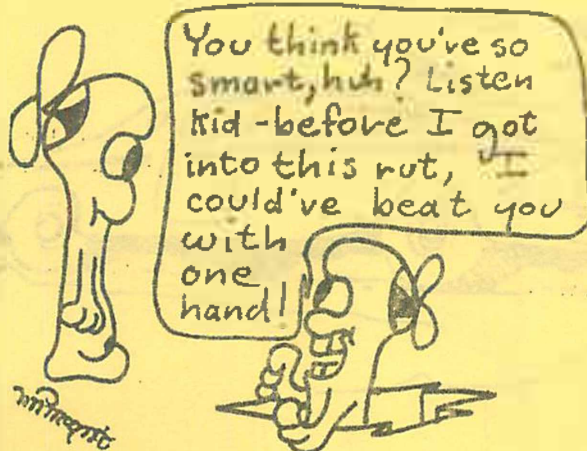 You think you've so
smart, huh? Listen
kid - before I got
into this rut, I
could've beat you
with
one
hand!